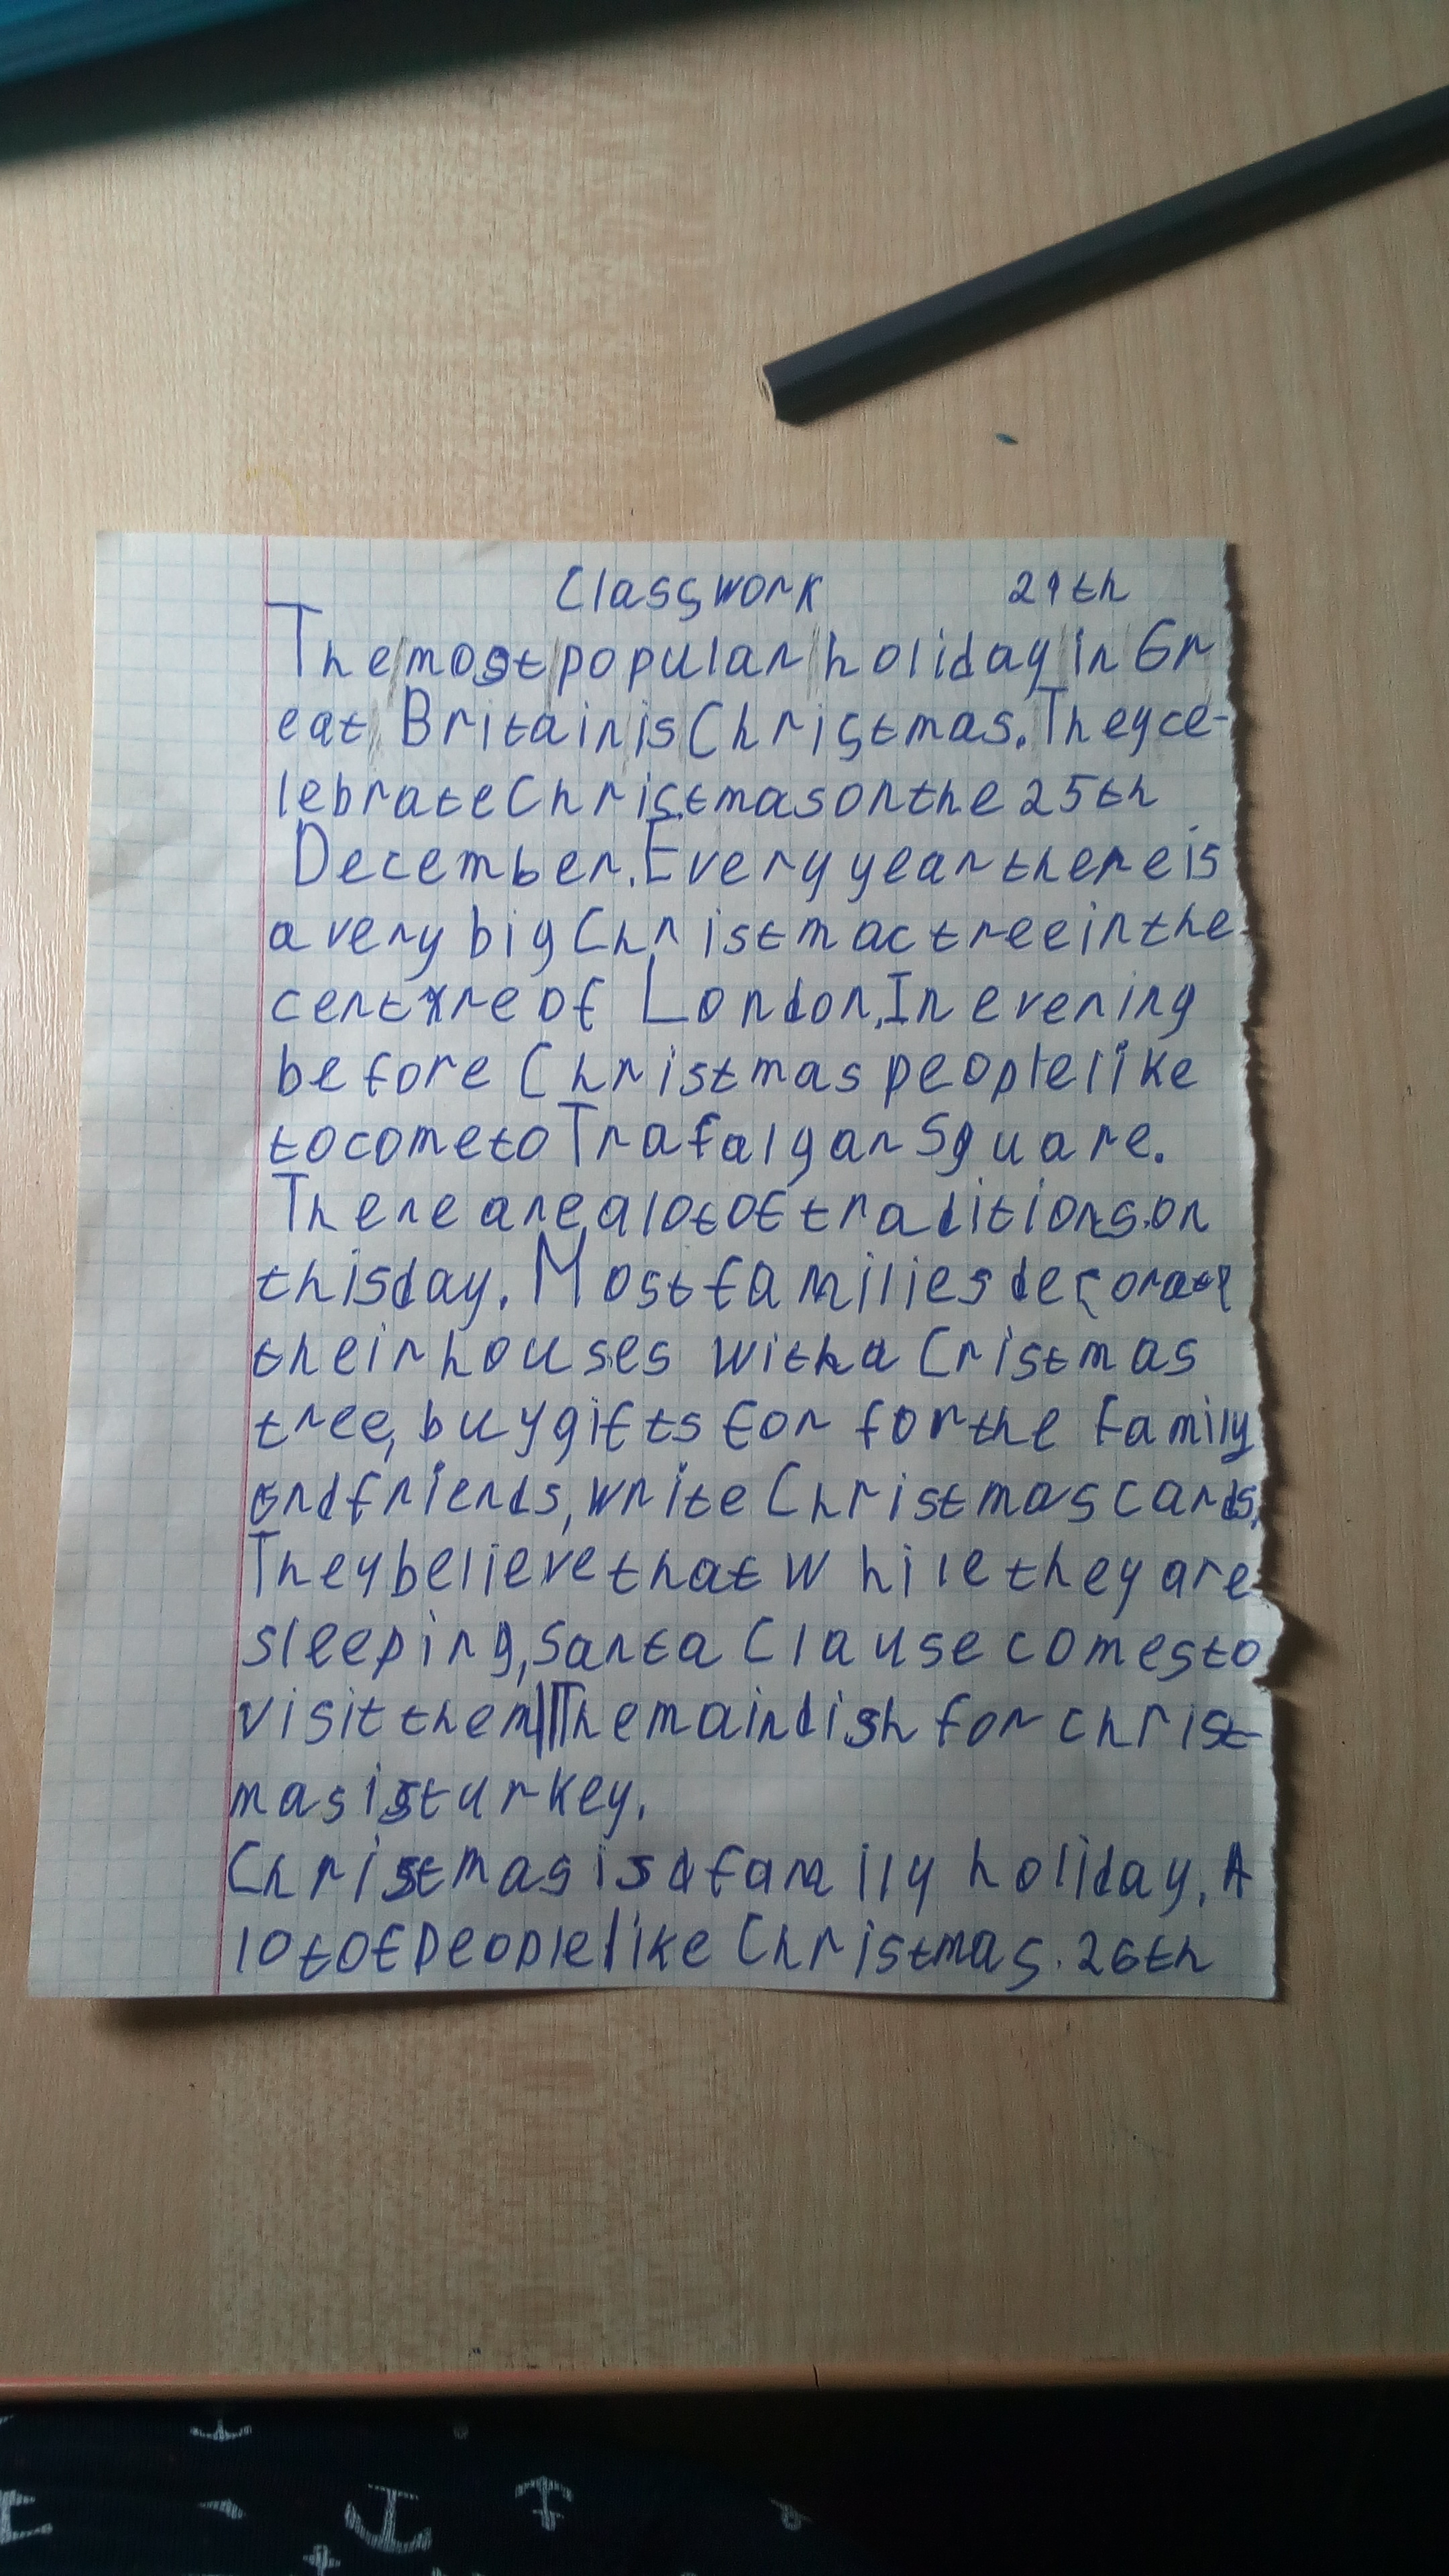 Classwork 29th
The most popular holiday in Gr
eat Britain is Christmas. They ce-
lebrate Christmas on the 25th
December. Every year there is
a very big Christmac tree in the
centre of London. In evening
before Christmas people like
to come to Trafalgar Square.
There are a lot of traditions on
this day. Most families decorate
their houses with a Cristmas
tree, buy gifts for for the family
and friends, write Christmas cards.
They believe that while they are
sleeping, Santa Clause comes to
visit them The main dish for christ
mas is turkey.
Christmas is a family holiday. A
lot of people like Christmas. 26th